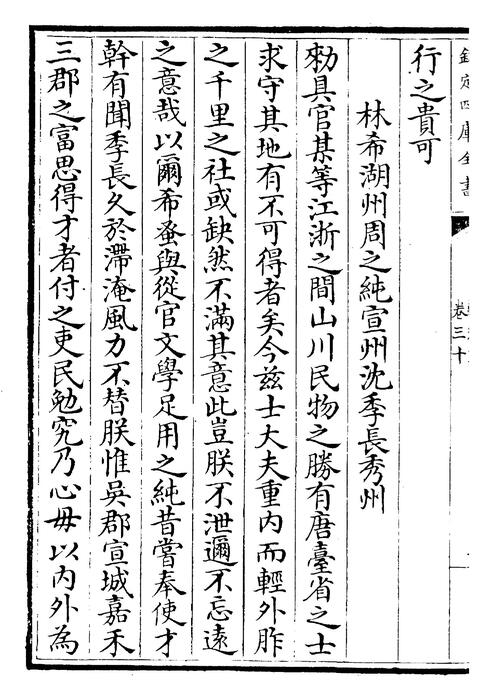 欽定四庫全書
卷三十
行之貴可
林希湖州周之純宣州沈季長秀州
勑具官某等江浙之間山川民物之勝有唐臺省之士
求守其地有不可得者矣今兹士大夫重内而輕外胙
之千里之社或缺然不滿其意此豈朕不泄邇不忘遠
之意哉以爾希蚤與從官文學足用之純昔嘗奉使才
幹有聞季長久於滯淹風力不替朕惟吳郡宣城嘉禾
三郡之富思得才者付之吏民勉究乃心毋以内外為